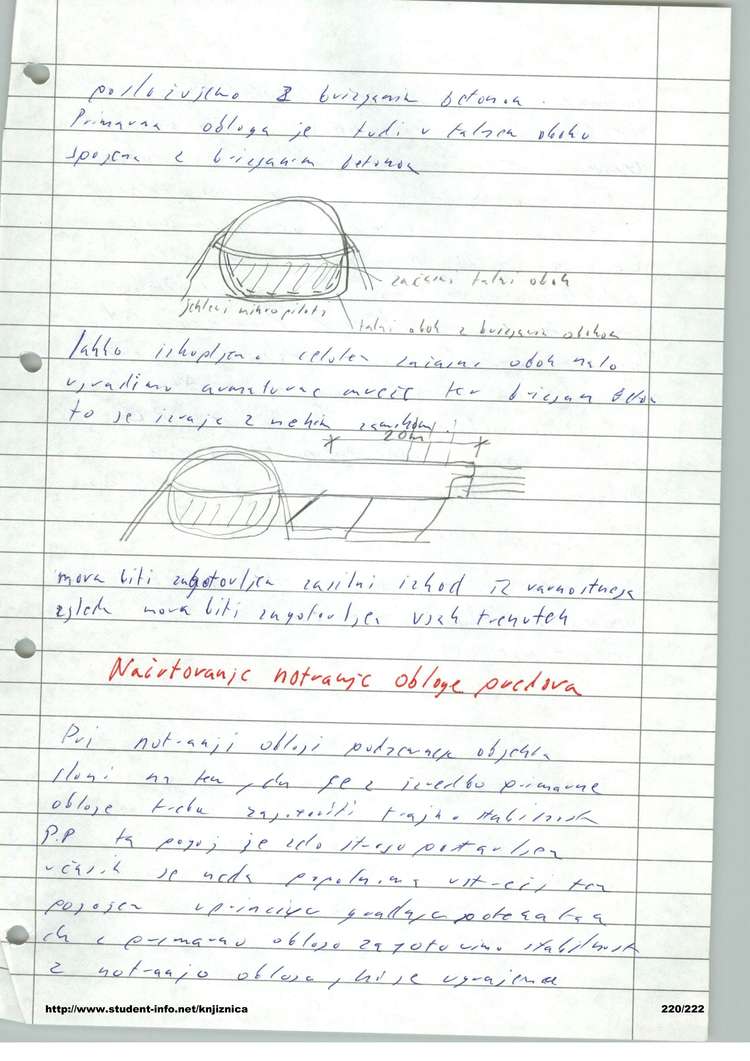 poslužujemo z brizganim betonom.
Primarna obloga je tudi v talnem oboku
spojena z brizganim betonom
začasni talni obok
jekleni mikropiloti
talni obok z brizganim obokom
lahko izkopljemo celoten začasni obok nato
vgradimo armaturne mreže ter brizgan beton
to se izvaja z nekim zamikom!
20m
mora biti zagotovljen zasilni izhod iz varnostnega
zgleda mora biti zagotovljen vseh trenutkih
Načrtovanje notranje obloge predora
Pri notranji oblogi podzemnega objekta
sloni na tem, da se z izvedbo primarne
obloge treba zagotoviti trajno stabilnost
P.P ta pogoj je zelo strogo postavljen
včasih se neda popolnoma ustreči tem
pogojem v principu gradnja poteka tako
da s primarno oblogo zagotovimo stabilnost
z notranjo oblogo, ki se vgrajena
http://www.student-info.net/knjiznica
220/222